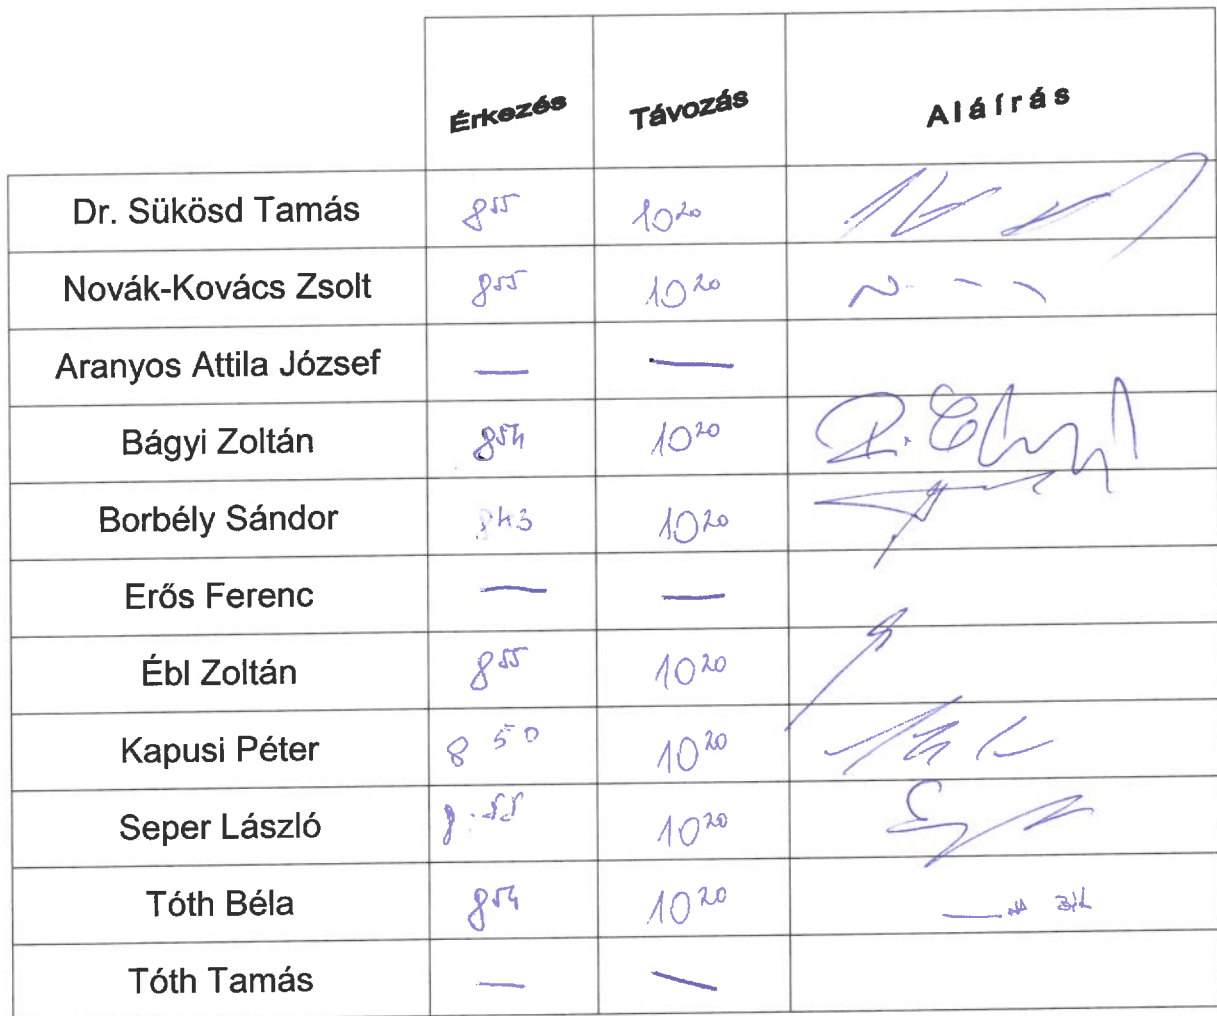 Érkezés Távozás Aláírás
Dr. Sükösd Tamás 8⁵⁵ 10²⁰
Novák-Kovács Zsolt 8⁵⁵ 10²⁰
Aranyos Attila József — —
Bágyi Zoltán 8⁵⁴ 10²⁰
Borbély Sándor 8⁴³ 10²⁰
Erős Ferenc — —
Ébl Zoltán 8⁵⁵ 10²⁰
Kapusi Péter 8⁵⁰ 10²⁰
Seper László 8.⁵⁵ 10²⁰
Tóth Béla 8⁵⁴ 10²⁰
Tóth Tamás — —